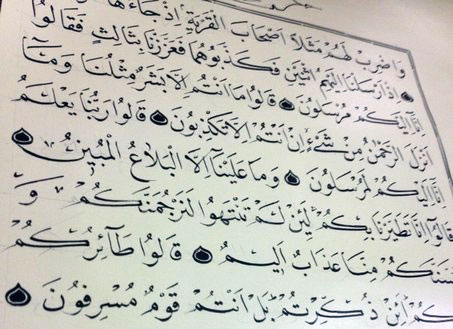 وَاضْرِبْ لَهُمْ مَثَلًا اَصْحَابَ الْقَرْيَةِ اِذْ جَاءَهَا
اِذْ اَرْسَلْنَا اِلَيْهِمُ اثْنَيْنِ فَكَذَّبُوهُمَا فَعَزَّزْنَا بِثَالِثٍ فَقَالُوا
اِنَّا اِلَيْكُمْ مُرْسَلُونَ قَالُوا مَا اَنْتُمْ اِلَّا بَشَرٌ مِثْلُنَا وَمَا
اَنْزَلَ الرَّحْمٰنُ مِنْ شَيْءٍ اِنْ اَنْتُمْ اِلَّا تَكْذِبُونَ قَالُوا رَبُّنَا يَعْلَمُ
اِنَّا اِلَيْكُمْ لَمُرْسَلُونَ وَمَا عَلَيْنَا اِلَّا الْبَلَاغُ الْمُبِينُ
قَالُوا اِنَّا تَطَيَّرْنَا بِكُمْ لَئِنْ لَمْ تَنْتَهُوا لَنَرْجُمَنَّكُمْ وَ
سَّنَّكُمْ مِنَّا عَذَابٌ اَلِيمٌ قَالُوا طَٓائِرُكُمْ
كُمْ اَئِنْ ذُكِّرْتُمْ بَلْ اَنْتُمْ قَوْمٌ مُسْرِفُونَ